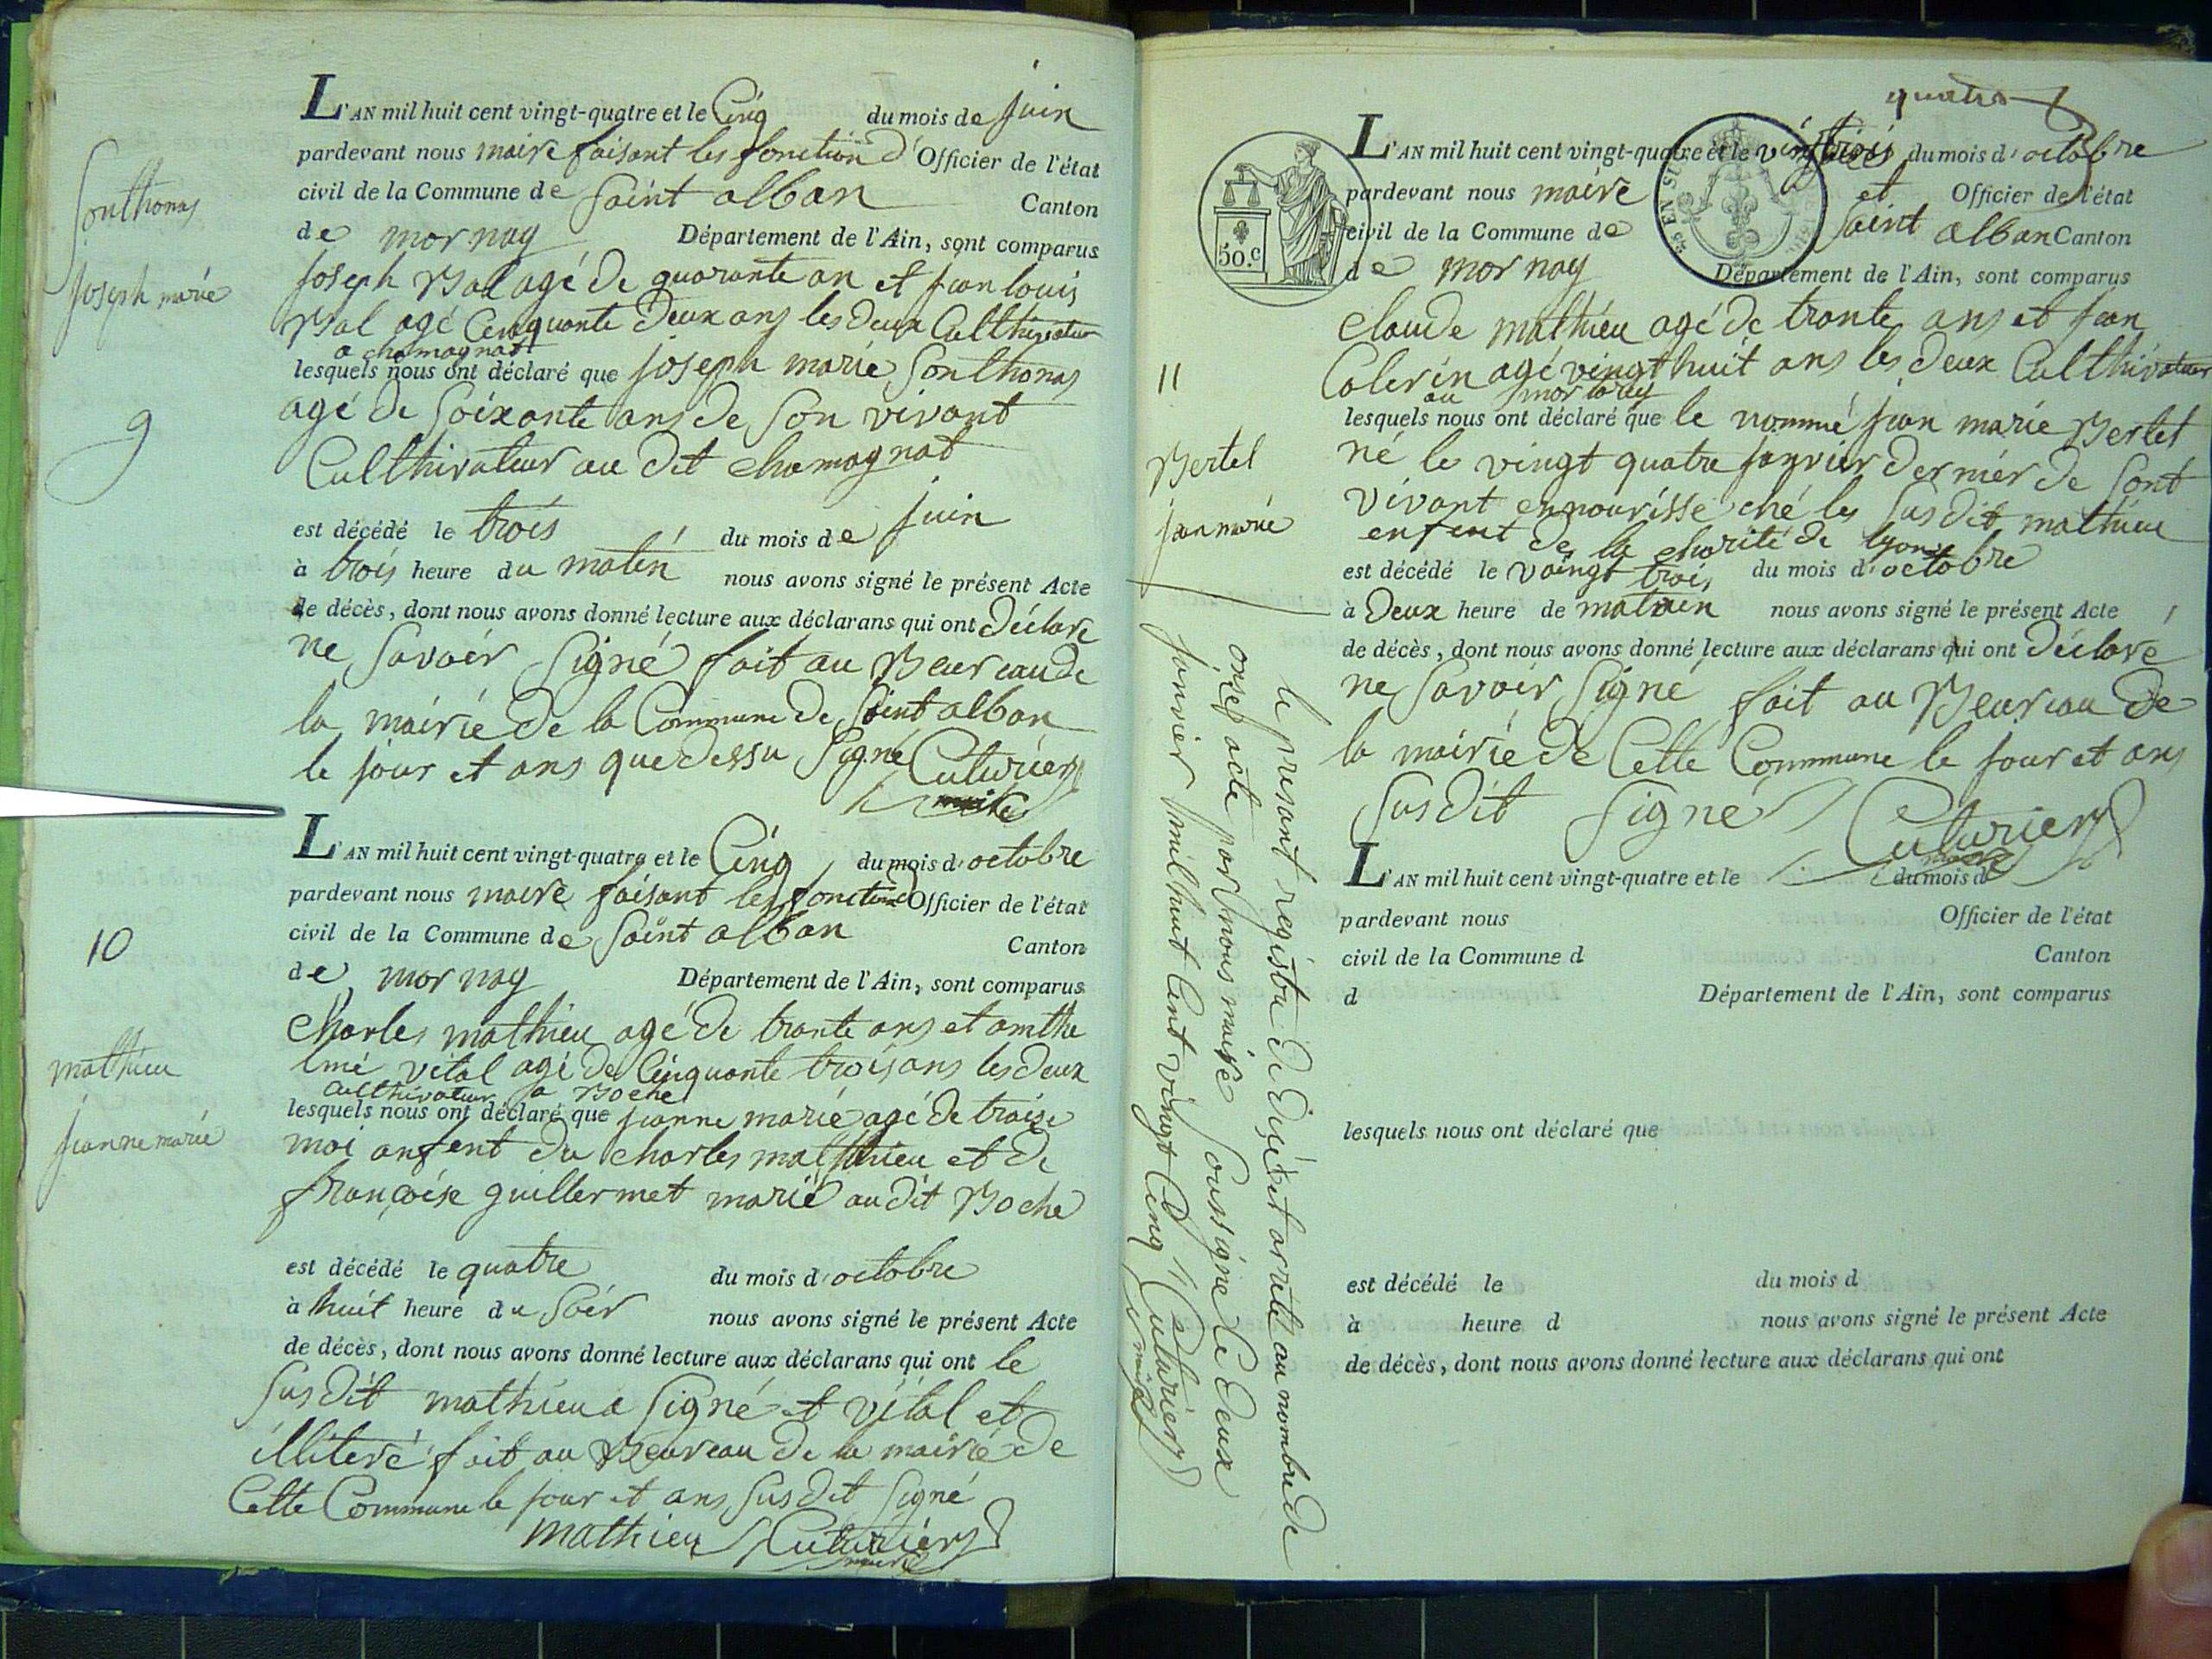 Sonthonas
Joseph marie
9
L'AN mil huit cent vingt-quatre et le Cinq du mois de juin
pardevant nous maire faisant les fonction d'Officier de l'état
civil de la Commune de Saint alban Canton
de mornay Département de l'Ain, sont comparus
joseph Bal agé de quarante an et jean louis
Bal agé Cinquante deux ans les deux Culthivateur
a chamagnat
lesquels nous ont déclaré que joseph marie Sonthonas
agé de Soixante ans de Son vivant
Culthivateur au dit chamagnat
est décédé le trois du mois de juin
à trois heure du matin nous avons signé le présent Acte
de décès, dont nous avons donné lecture aux déclarans qui ont déclaré
ne Savoir Signé fait au Beureau de
la mairie de la Commune de Saint alban
le jour et ans que dessu Signé Cuturier
maire
10
mathieu
jeanne marie
L'AN mil huit cent vingt-quatre et le Cinq du mois d'octobre
pardevant nous maire faisant les fonction Officier de l'état
civil de la Commune de Saint alban Canton
de mornay Département de l'Ain, sont comparus
Charles mathieu agé de trante ans et anthe
lmé vital agé de Cinquante trois ans les deux
Culthivateur a Boche
lesquels nous ont déclaré que jeanne marie agé de traise
moi anfent du charles matthieu et de
françoise guillermet marié au dit Boche
est décédé le quatre du mois d'octobre
à huit heure du Soir nous avons signé le présent Acte
de décès, dont nous avons donné lecture aux déclarans qui ont le
Susdit mathieu a Signé et vital et
illiteré fait au Beureau de la mairie de
Cette Commune le jour et ans Susdit Signé
mathieu Cuturier
maire
quatre
50.c
EN SUS
L'AN mil huit cent vingt-quatre et le vingt trois du mois d'octobre
pardevant nous maire et Officier de l'état
civil de la Commune de Saint alban Canton
de mornay Département de l'Ain, sont comparus
Claude mathieu agé de trante ans et jean
Colerin agé vingt huit ans les deux Culthivateur
au
lesquels nous ont déclaré que le nommé jean marie Bertet
né le vingt quatre janvier dernier de Sont
vivant en nourisse ché les Susdit mathieu
enfent de la charité de lyon
est décédé le vaingt trois du mois d'octobre
à Deux heure de matin nous avons signé le présent Acte
de décès, dont nous avons donné lecture aux déclarans qui ont déclaré
ne Savoir Signé fait au Beureau de
la mairie de Cette Commune le jour et ans
Susdit Signé Cuturier
maire
11
Bertel
jean marie
L'AN mil huit cent vingt-quatre et le du mois d
pardevant nous Officier de l'état
civil de la Commune d Canton
d Département de l'Ain, sont comparus
lesquels nous ont déclaré que
est décédé le du mois d
à heure d nous avons signé le présent Acte
de décès, dont nous avons donné lecture aux déclarans qui ont
le presant registre de arrete au nombre de
onse acte par nous maire Soussigné le deux
janvier mil huit Cent vingt Cinq Cuturier
maire